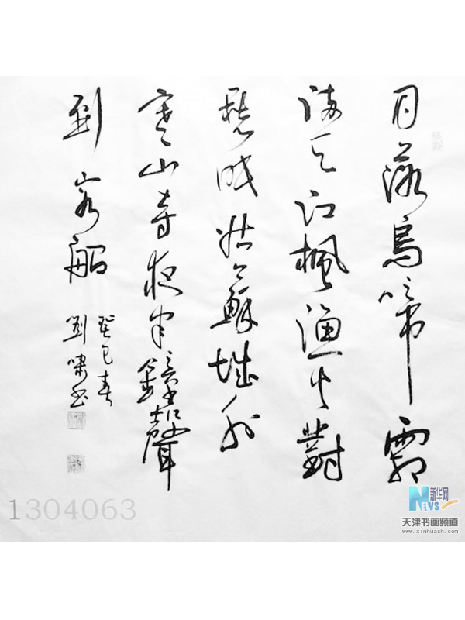 月落烏啼霜
滿天江楓漁火對
愁眠姑蘇城外
寒山寺夜半鐘聲
到客船
癸巳春
劉嘯書
1304063
新华网
NEWS
天津书画频道